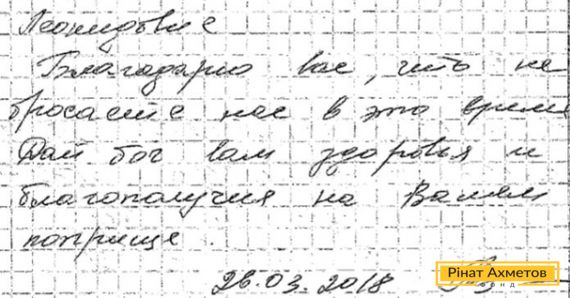 Леонидович
Благодарю вас, что не
бросаете нас в это время
Дай бог вам здоровья и
благополучия на Вашем
поприще.
26.03.2018
Рінат Ахметов
фонд